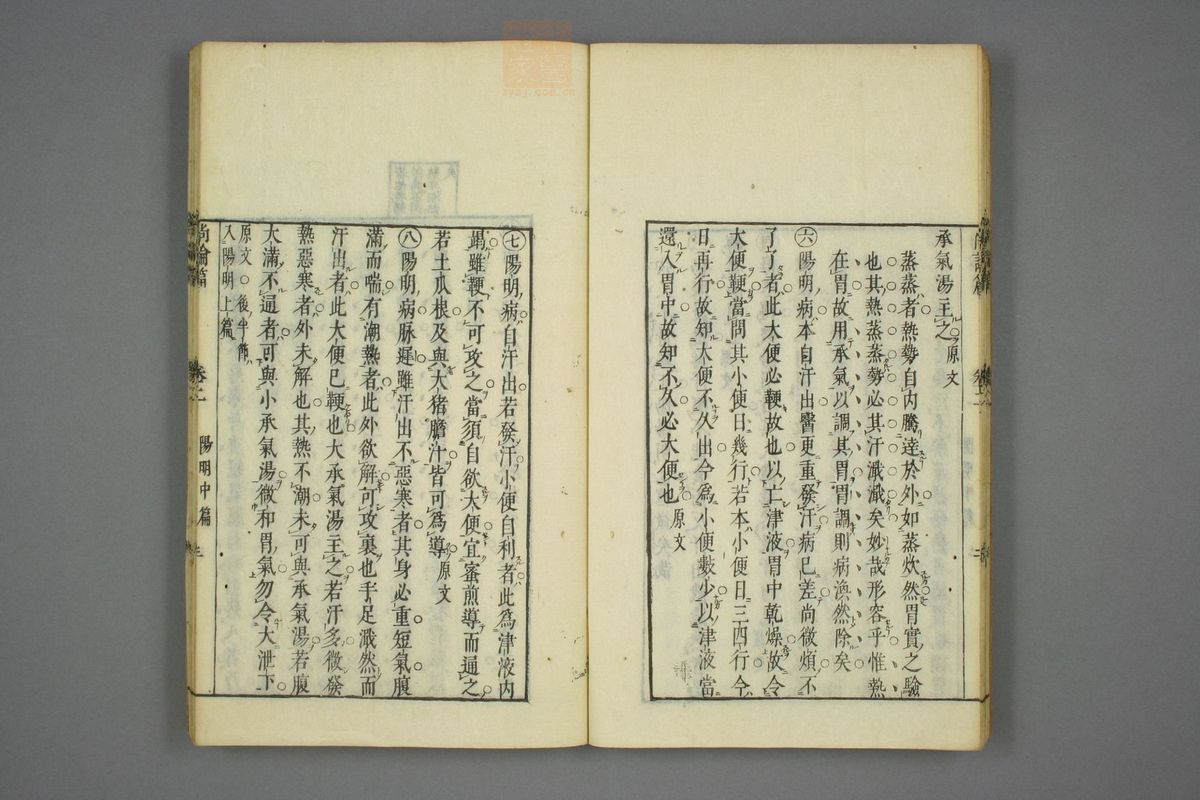 承氣湯主之原文
蒸蒸者熱勢自內騰達於外如蒸炊然胃實之驗
也其熱蒸蒸勢必其汗濈濈矣妙哉形容乎惟熱
在胃故用承氣以調其胃胃調則病渙然除矣
六陽明病本自汗出醫更重發汗病已差尚微煩不
了了者此大便必鞕故也以亡津液胃中乾燥故令
大便鞕當問其小便日幾行若本小便日三四行今
日再行故知大便不久出今爲小便數少以津液當
還入胃中故知不久必大便也原文
七陽明病自汗出若發汗小便自利者此爲津液內
竭雖鞕不可攻之當須自欲大便宜蜜煎導而通之
若土瓜根及與大猪膽汁皆可爲導原文
八陽明病脉遲雖汗出不惡寒者其身必重短氣腹
滿而喘有潮熱者此外欲解可攻裏也手足濈然而
汗出者此大便已鞕也大承氣湯主之若汗多微發
熱惡寒者外未解也其熱不潮未可與承氣湯若腹
大滿不通者可與小承氣湯微和胃氣勿令大泄下
原文○後半節
入陽明上篇
尚論篇 卷二 陽明中篇